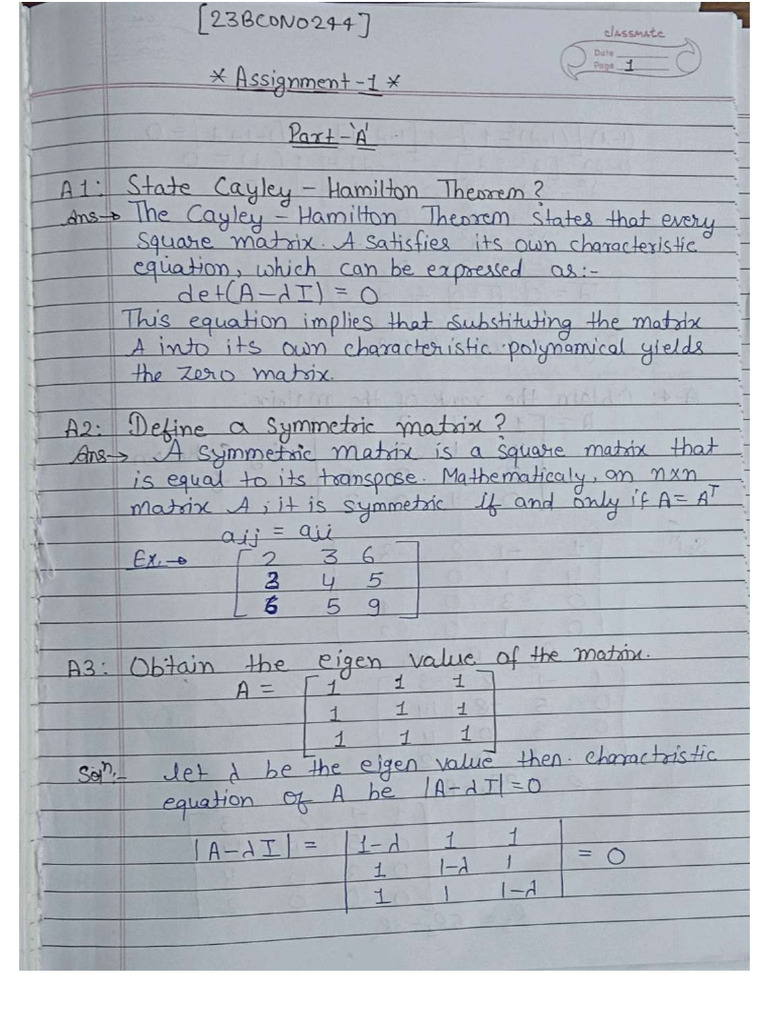 [23BCON0244]
classmate
Date
Page 1
* Assignment-1 *
Part-'A'
A1: State Cayley - Hamilton Theorem?
Ans→ The Cayley - Hamilton Theorem states that every
square matrix. A satisfies its own characteristic
equation, which can be expressed as:-
det(A-λI) = 0
This equation implies that substituting the matrix
A into its own characteristic polynamical yields
the zero matrix.
A2: Define a symmetric matrix?
Ans→ A symmetric matrix is a square matrix that
is equal to its transpose. Mathematicaly, an n×n
matrix A, it is symmetric if and only if A = Aᵀ
aij = aji
Ex.→ [ 2 3 6
3 4 5
6 5 9 ]
A3: Obtain the eigen value of the matrix.
A = [ 1 1 1
1 1 1
1 1 1 ]
Solⁿ:- Let λ be the eigen value then charactristic
equation of A be |A-λI|=0
|A-λI| = | 1-λ 1 1
1 1-λ 1 | = 0
1 1 1-λ